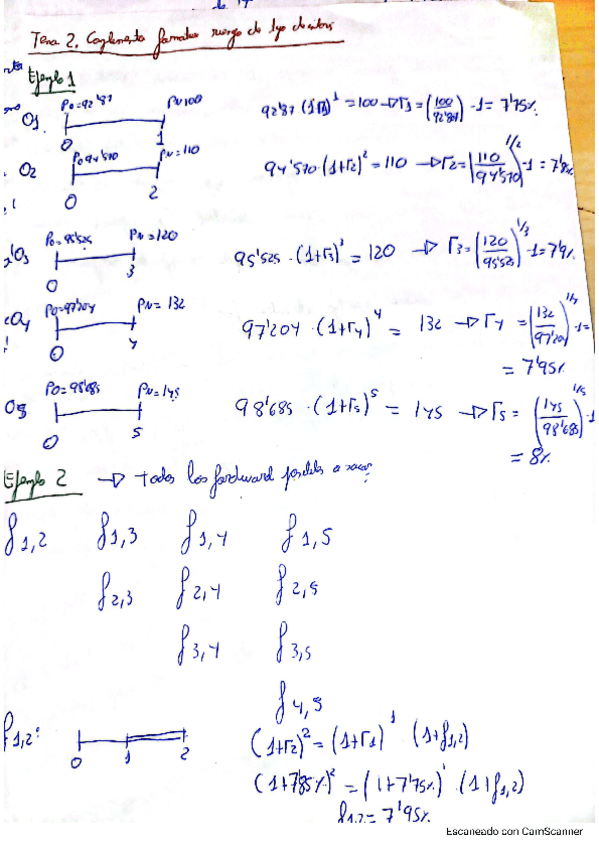 Tema 2. Complemento formativo riesgo de tipo de interés
Ejemplo 1
O1
P0=92'87
PN=100
0
1
92'87 (1+r1)^1 = 100 → r1 = (100/92'87) - 1 = 7'75%
O2
P0=94'570
PN=110
0
2
94'570 · (1+r2)^2 = 110 → r2 = (110/94'570)^1/2 - 1 = 7'8%
O3
P0=95'525
PN=120
0
3
95'525 · (1+r3)^3 = 120 → r3 = (120/95'525)^1/3 - 1 = 7'9%
O4
P0=97'204
PN=132
0
4
97'204 · (1+r4)^4 = 132 → r4 = (132/97'204)^1/4 - 1 =
= 7'95%
O5
P0=98'685
PN=145
0
5
98'685 · (1+r5)^5 = 145 → r5 = (145/98'685)^1/5 - 1
= 8%
Ejemplo 2 → todos los fordward posibles a sacar
f1,2 f1,3 f1,4 f1,5
f2,3 f2,4 f2,5
f3,4 f3,5
f4,5
f1,2:
0 1 2
(1+r2)^2 = (1+r1)^1 · (1+f1,2)
(1+7'85%)^2 = (1+7'75%)^1 · (1+f1,2)
f1,2 = 7'95%
Escaneado con CamScanner